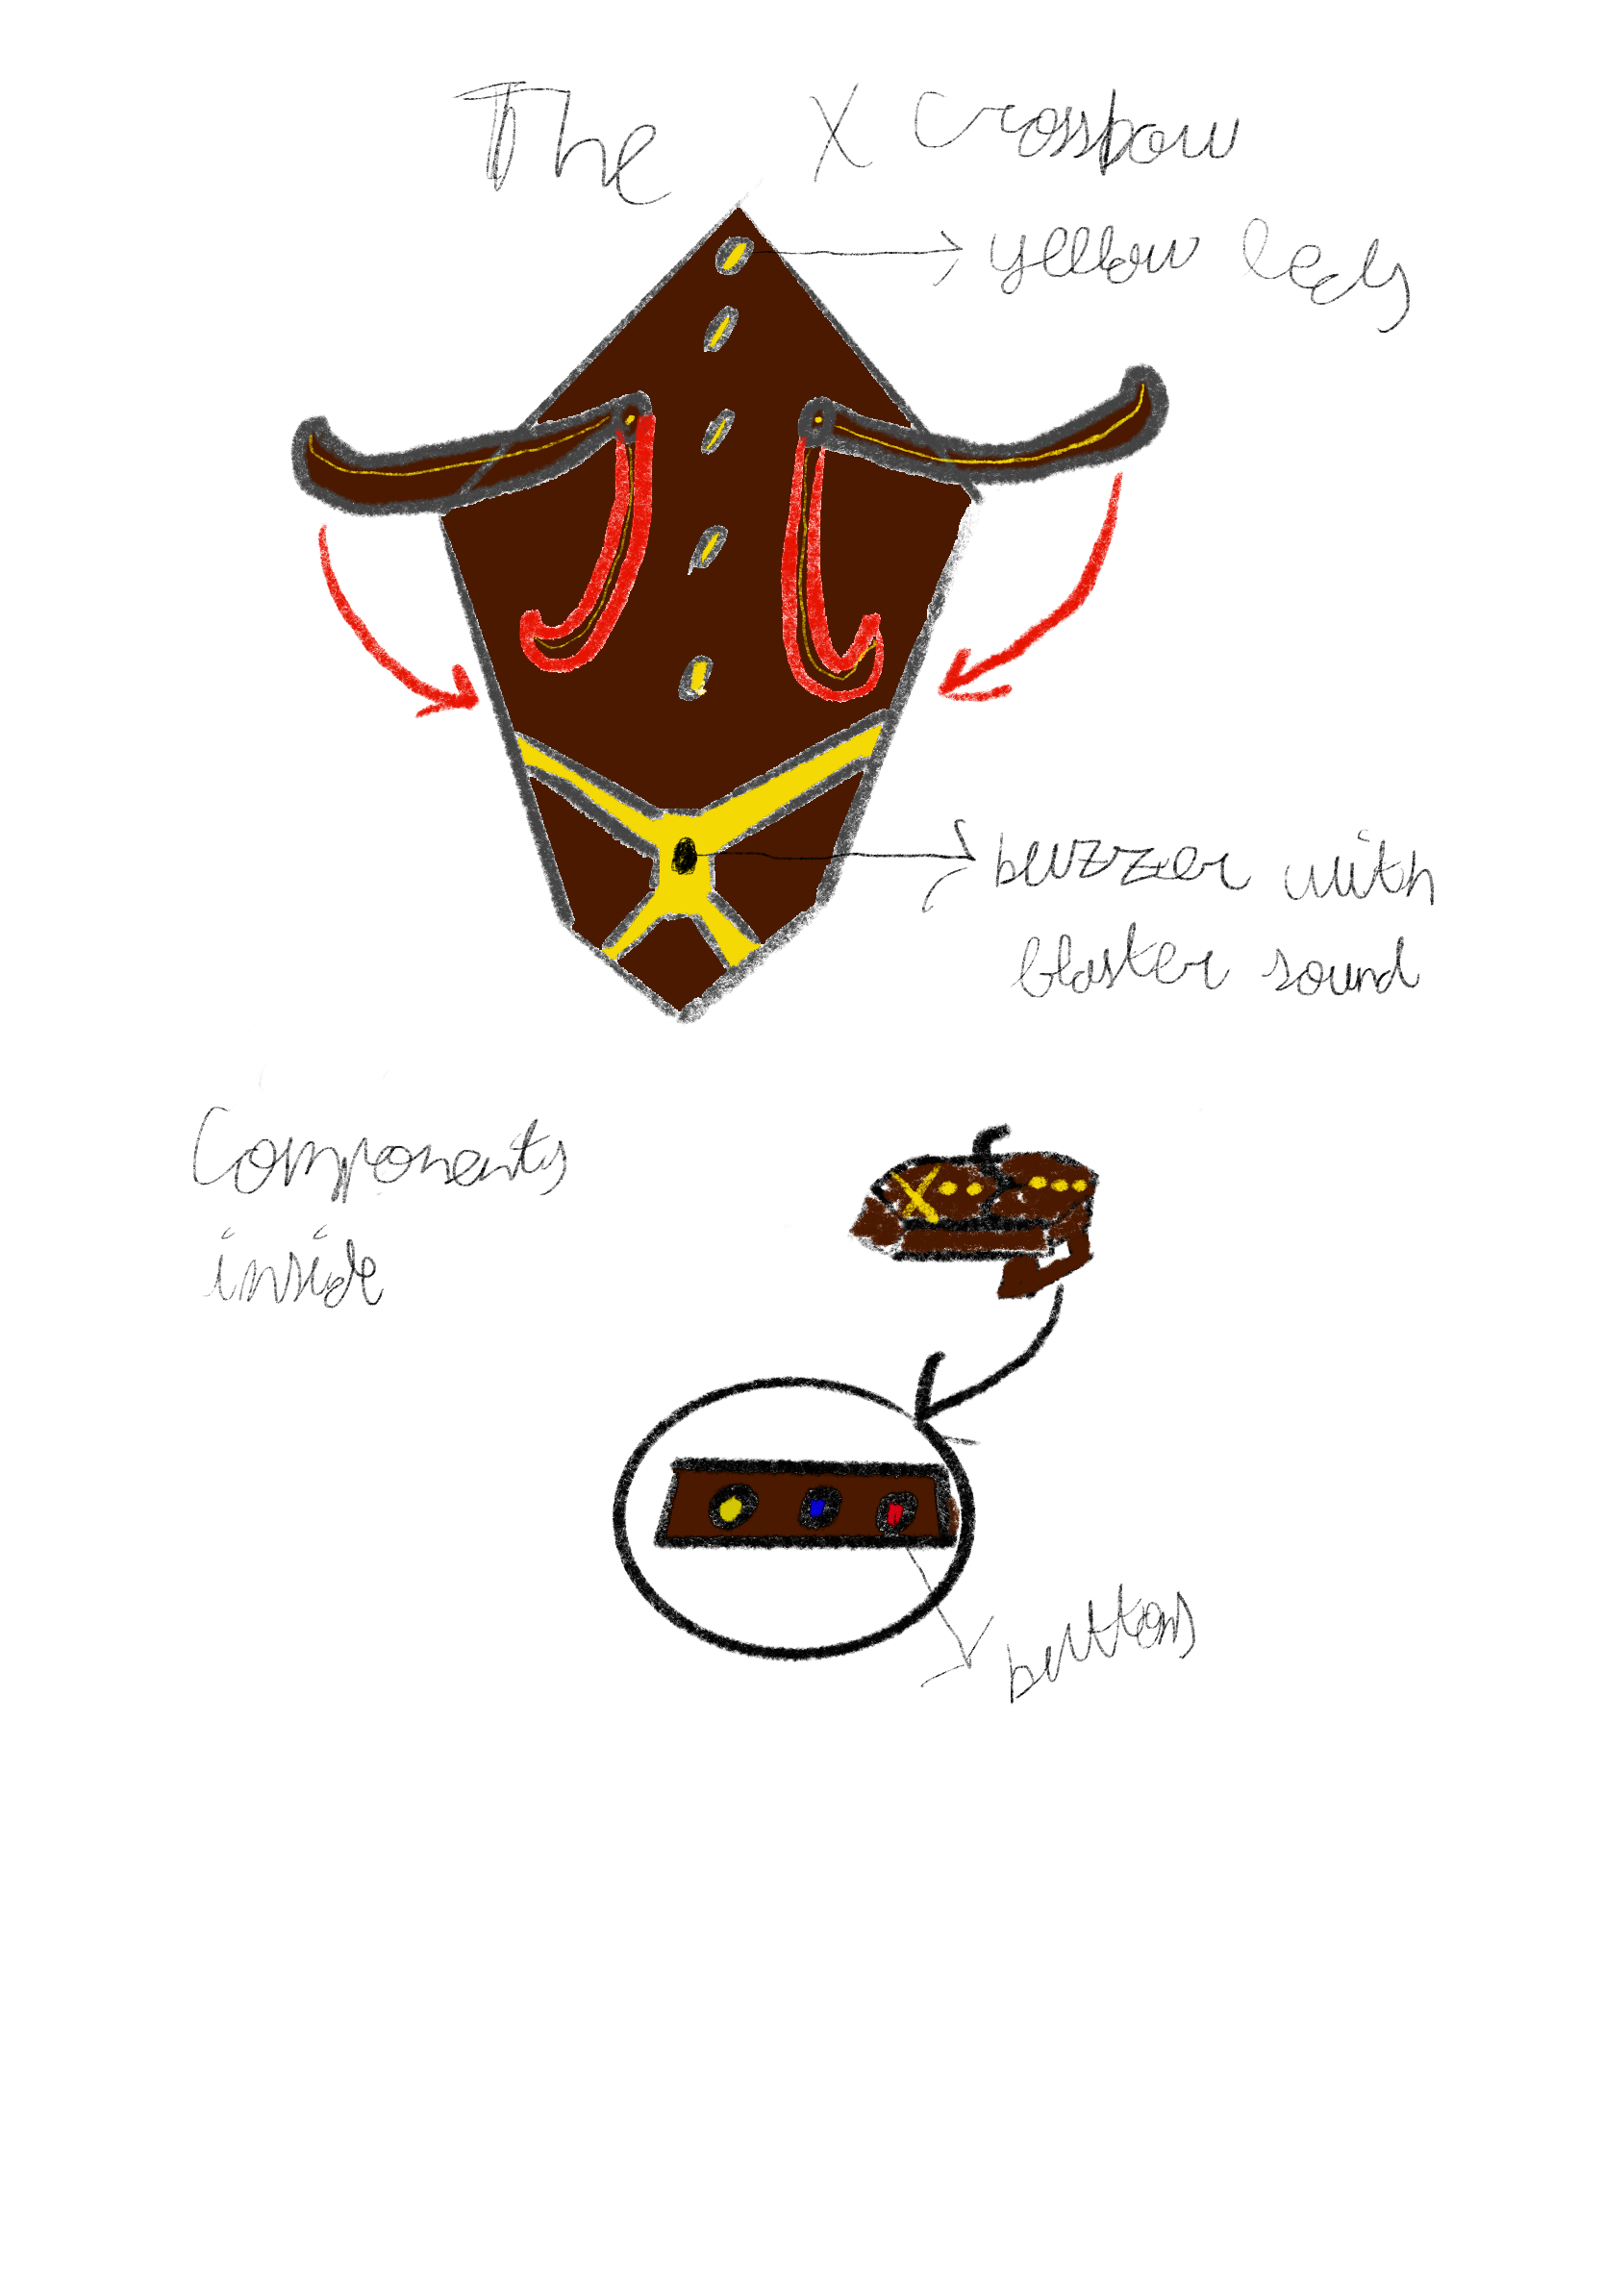 The X Crossbow
yellow leds
buzzer with
blaster sound
Components
inside
buttons